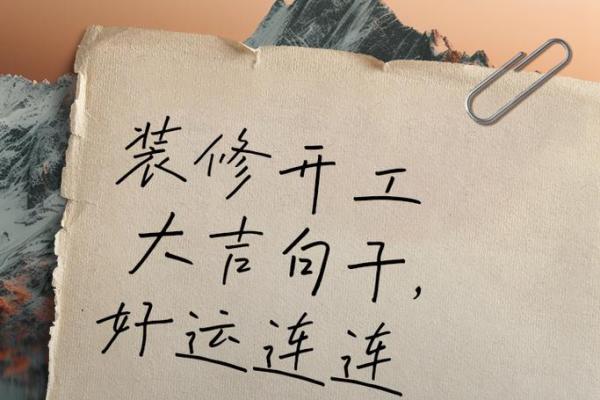 装修开工
大吉句子,
好运连连